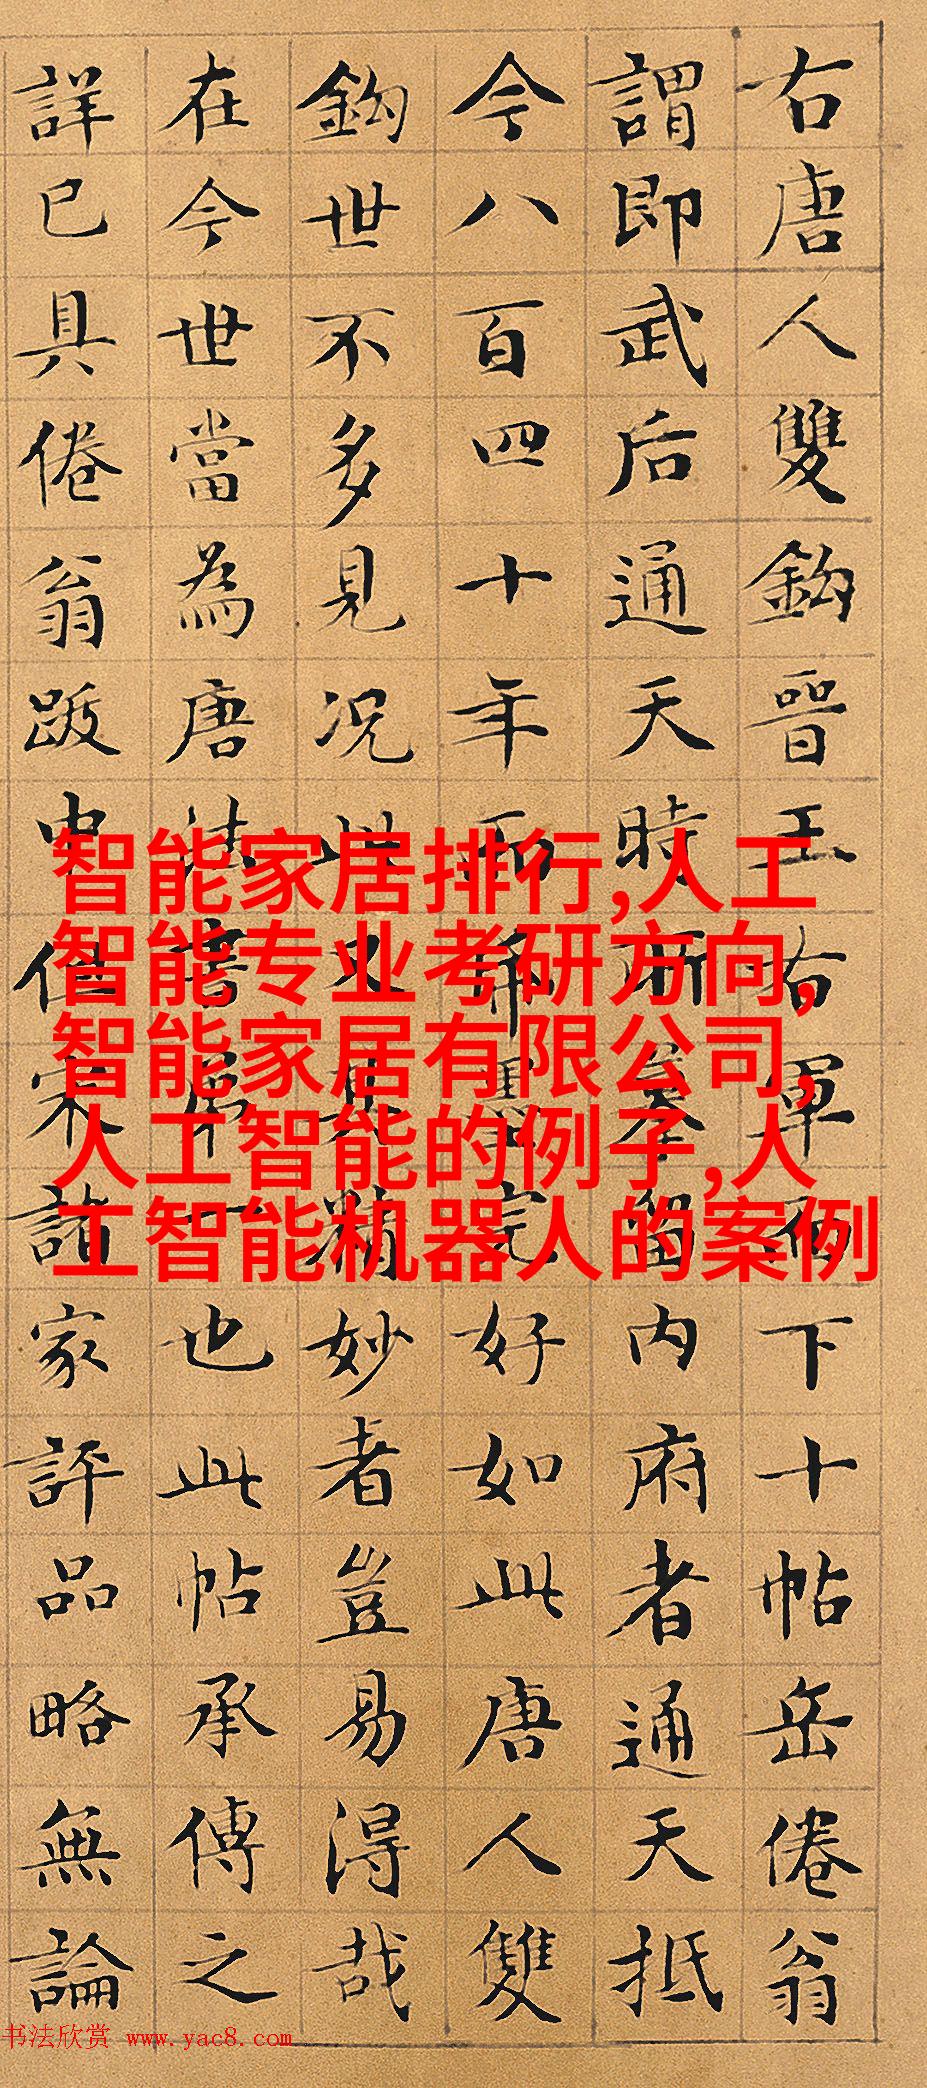 右唐人雙鈎晉王右軍而下十帖岳倦翁
謂即武后通天時所摹留內府者通天抵
今八百四十年而紙墨完好如此唐人雙
鈎世不多見况此又其精妙者豈易得哉
在今世當為唐法書第一也此帖承傳之
詳已具倦翁跋中但宋諸家評品略無論
智能家居排行,人工
智能专业考研方向,
智能家居有限公司,
人工智能的例子,人
工智能机器人的案例
书法欣赏 www.yac8.com